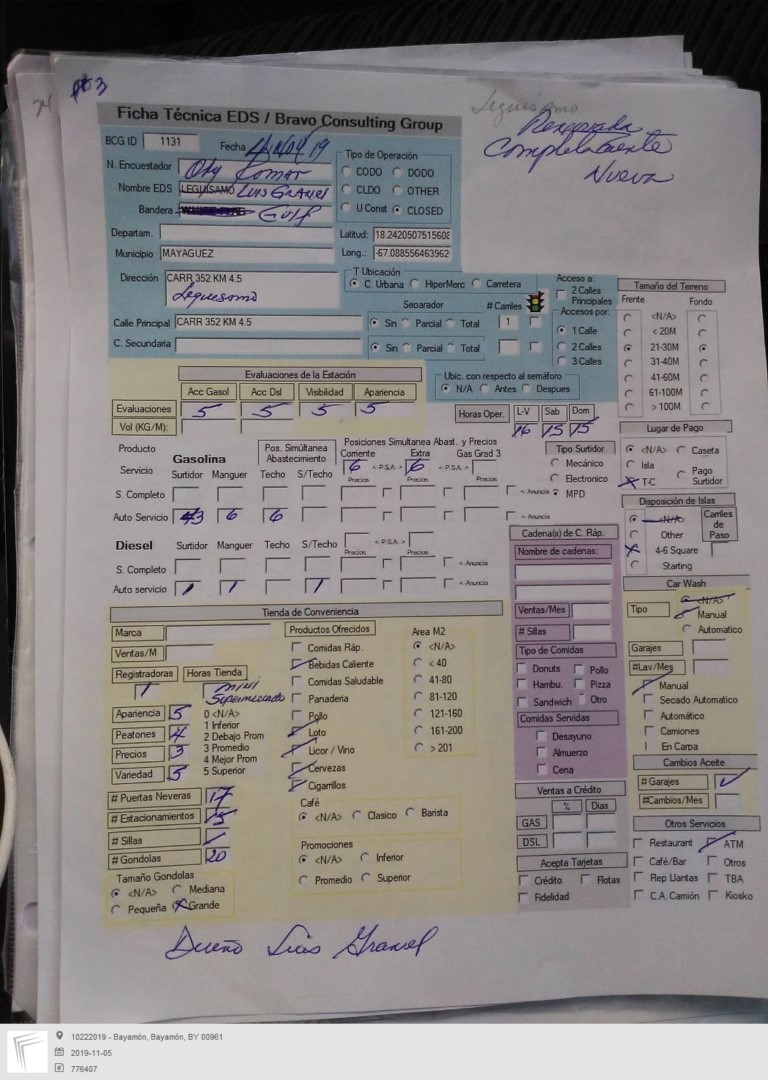 Leguisamo
Remozada
Completamente
Nueva
Ficha Técnica EDS / Bravo Consulting Group
BCG ID 1131 Fecha
N. Encuestador
Nombre EDS LEGUISAMO Luis Graniel
Bandera Gulf
Departam.
Municipio MAYAGUEZ
Tipo de Operación
CODO DODO
CLDO OTHER
U Const CLOSED
Latitud: 18.2420507515608
Long.: -67.088556463962
Dirección CARR 352 KM 4.5
Leguisamo
Calle Principal CARR 352 KM 4.5
C. Secundaria
T Ubicación
C. Urbana HiperMerc Carretera
Separador # Carriles
Sin Parcial Total 1
Sin Parcial Total
Acceso a:
2 Calles
Principales
Accesos por:
1 Calle
2 Calles
3 Calles
Tamaño del Terreno
Frente Fondo
<N/A>
< 20M
21-30M
31-40M
41-60M
61-100M
> 100M
Evaluaciones de la Estación
Acc Gasol Acc Dsl Visibilidad Apariencia
Evaluaciones 5 5 5 5
Vol (KG/M):
Ubic. con respecto al semáforo
N/A Antes Despues
Horas Oper. L-V Sab Dom
16 15 15
Lugar de Pago
<N/A> Caseta
Isla Pago
T-C Surtidor
Producto Gasolina
Servicio Surtidor Manguer
Pos. Simúltanea
Abastecimiento
Techo S/Techo
Posiciones Simultanea Abast. y Precios
Corriente Extra Gas Grad 3
6 < P.S.A > 6 < P.S.A >
Precios Precios Precios
S. Completo < Anuncia
Auto Servicio 3 6 6 < Anuncia
Tipo Surtidor
Mecánico
Electronico
MPD
Disposición de Islas
<N/A>
Other
4-6 Square
Starting
Carriles
de
Paso
Diesel Surtidor Manguer Techo S/Techo
< P.S.A >
Precios Precios
S. Completo < Anuncia
Auto servicio 1 1 1 < Anuncia
Cadena(s) de C. Ráp.
Nombre de cadenas:
Ventas/Mes
# Sillas
Tipo de Comidas
Donuts Pollo
Hambu. Pizza
Sandwich Otro
Comidas Servidas
Desayuno
Almuerzo
Cena
Car Wash
Tipo <N/A>
Manual
Automatico
Garajes
#Lav/Mes
Manual
Secado Automatico
Automático
Camiones
En Carpa
Tienda de Conveniencia
Marca
Ventas/M
Registradoras Horas Tienda
1 mini
Supermercado
Apariencia 5
Peatones 4
Precios 3
Variedad 5
0 <N/A>
1 Inferior
2 Debajo Prom
3 Promedio
4 Mejor Prom
5 Superior
# Puertas Neveras 17
# Estacionamientos 15
# Sillas
# Gondolas 20
Tamaño Gondolas
<N/A> Mediana
Pequeña Grande
Productos Ofrecidos
Comidas Ráp.
Bebidas Caliente
Comidas Saludable
Panaderia
Pollo
Loto
Licor / Vino
Cervezas
Cigarrillos
Area M2
<N/A>
< 40
41-80
81-120
121-160
161-200
> 201
Café
<N/A> Clasico Barista
Promociones
<N/A> Inferior
Promedio Superior
Ventas a Crédito
% Dias
GAS
DSL
Acepta Tarjetas
Crédito Flotas
Fidelidad
Cambios Aceite
# Garajes
#Cambios/Mes
Otros Servicios
Restaurant ATM
Café/Bar Otros
Rep Llantas TBA
C.A. Camión Kiosko
Dueño Luis Graniel
10222019 - Bayamón, Bayamón, BY 00961
2019-11-05
776407